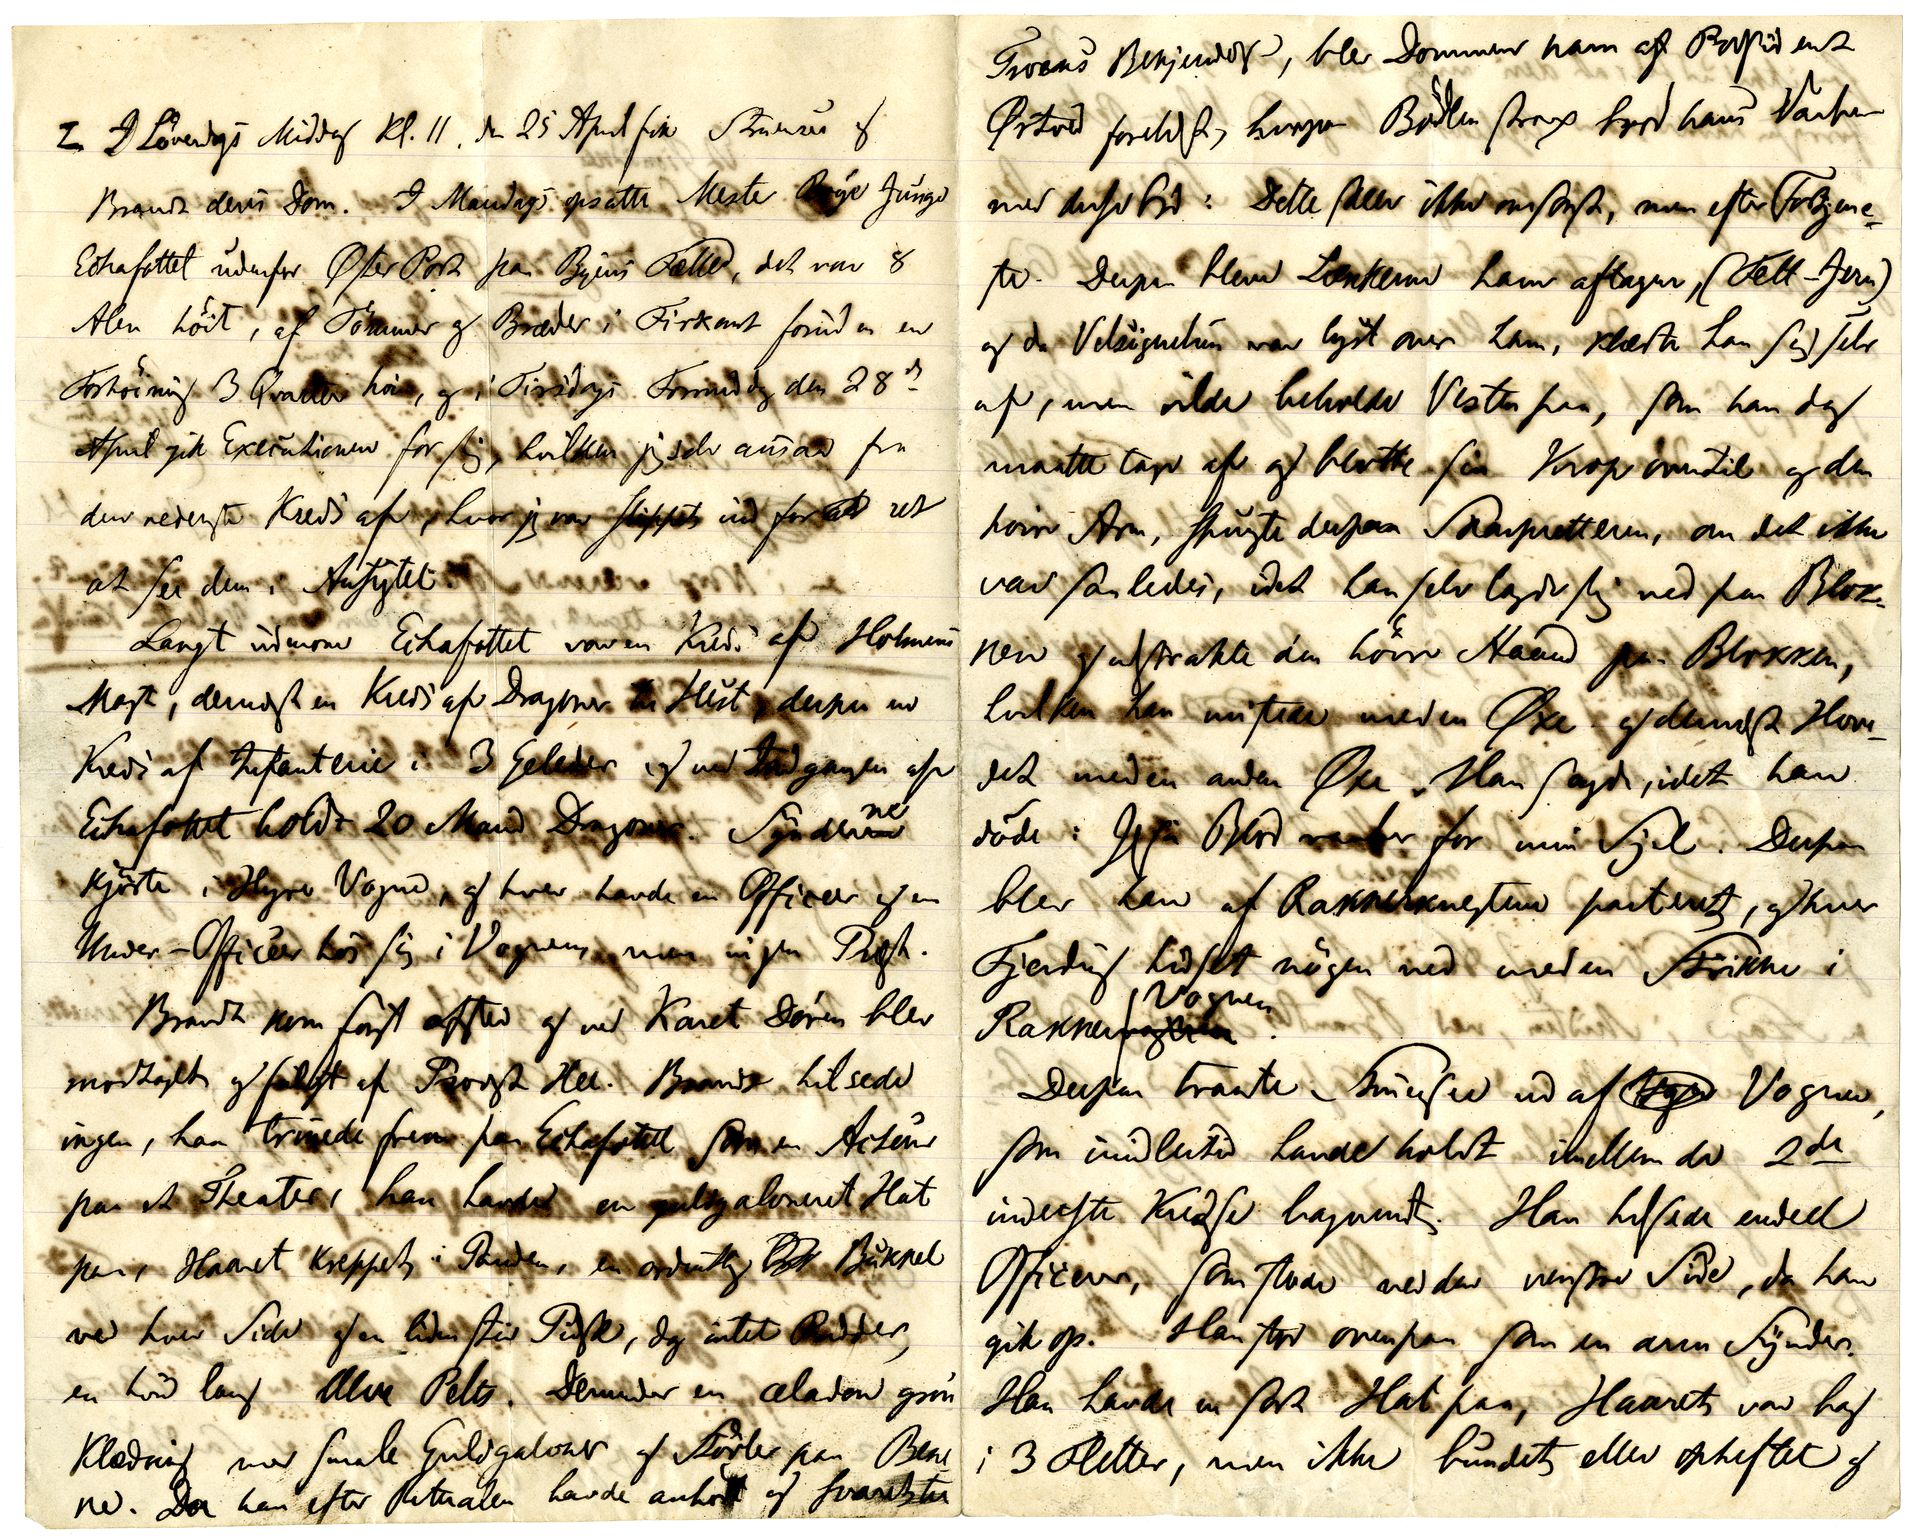 I Löverdags Middag Kl. 11, den 25 April fik Struensee og
Brandt deris Dom. I Mandags opsatte Mester Böye Junge
Echafottet udenfor Øster Port paa Byens Fælled, det var 8
Alen höit, af Tömmer og Bræder i Firkant foruden en
Forhöining 3 Qvarter höi, og i Tirsdags Formiddag den 28de
April gik Executionen for sig, hvilken jeg selv ansaae fra
den nederste Kreds af, hvor jeg var slippet ind for at ret
at see dem i Ansigtet.
Langt udenom Echafottet var en Kreds af Holmens
Magt, dernæst en Kreds af Dragoner til Hest, derpaa en
Kreds af Infanterie i 3 Geleder og ved Indgangen af
Echafottet holdt 20 Mand Dragoner. Synderne
kjörte i Hyre Vogne, og hver havde en Officeer og en
Under-Officeer hos sig i Vognen, men ingen Præst.
Brandt kom först afsted og ved Karet Dören blev
modtaget og fulgt af Provst Hee. Brandt hilsede
ingen, han trinede frem paa Echafottet som en Acteur
paa et Theater, han havde en guldgaloneret Hat
paa, Haaret kreppet i Panden, en ordentlig Bukkel
ved hver Side og en liden stiv Pidsk, dog intet Pudder,
en hvid lang Pelts. Derunder en celadon grön
Klædning med smale Guldgaloner og Stövler paa Bene
ne. Da han efter Ritualen havde anhört og svaret til
Troens Bekjendelse, blev Dommen ham af
Østved forelæst, hvorpaa Bödlen strax bröd hans Vaaben
med disse Ord: Dette skeer ikke omsonst, men efter Fortjene-
ste. Derpaa bleve Lænkerne ham aftagne, (Felt-Jern)
og da Velsignelsen var lyst over ham, klædte han sig selv
af, men vilde beholde Vesten paa, som han dog
maatte tage af og blotte sin Krop oventil og den
höire Arm, spurgte derpaa Skarpretteren, om det ikke
var saaledes, idet han selv lagde sig ned paa Blok-
ken og udstrakte den höire Haand paa Blokken,
hvilken han mistede med en Øxe og dernæst Hove-
det med en anden Øxe. Han sagde, idet han
döde: Jesu Blod raaber for min Sjel. Derpaa
blev han af Rakkerknegtene parteret, og hver
Fjerding hidset nögen ned med en Strikke i
Rakkervognen Vognen.
Derpaa traadte Struensee ud af Vognen,
som imidlertid havde holdt imellem de 2de
inderste Kredse bagvendt. Han hilsede endeel
Officerer, som stode ved den venstre Side, da han
gik op. Han stod ovenpaa som en arm Synder.
Han havde en sort Hat paa, Haaret var bag
i 3 Fletter, men ikke bundet eller opheftet og